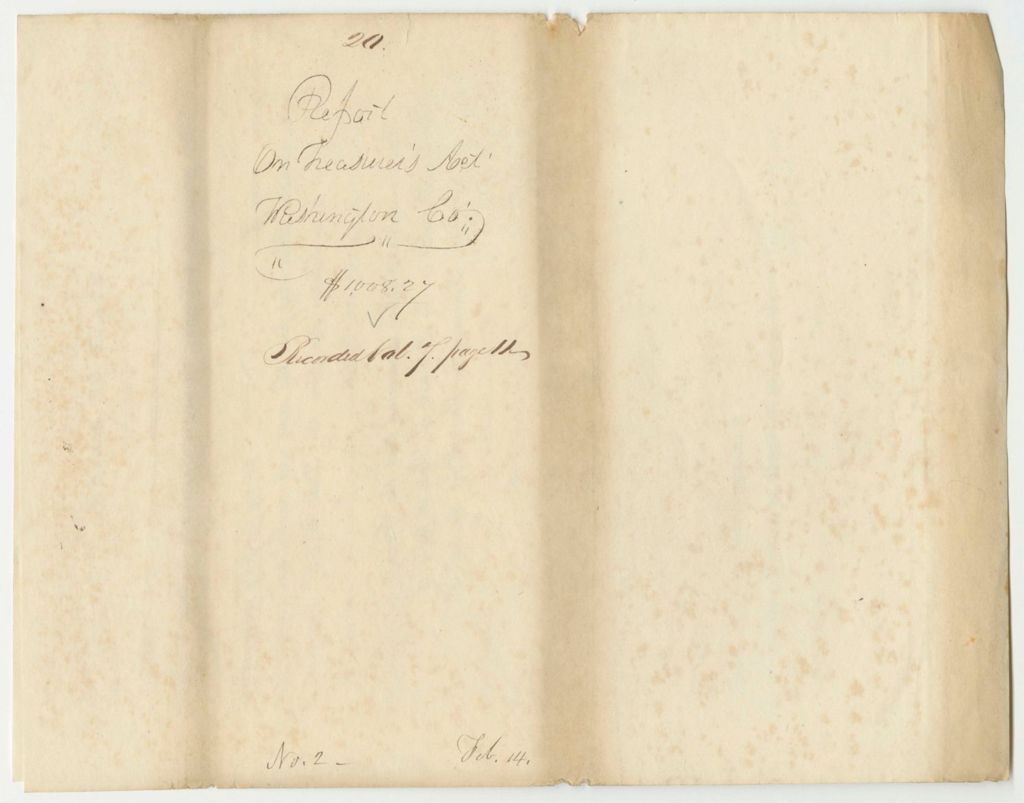 20.
Report
On Treasurer's Act'
Washington Co'.
$1008.27
Recorded Vol. 7. page
No. 2 -
Feb. 14.